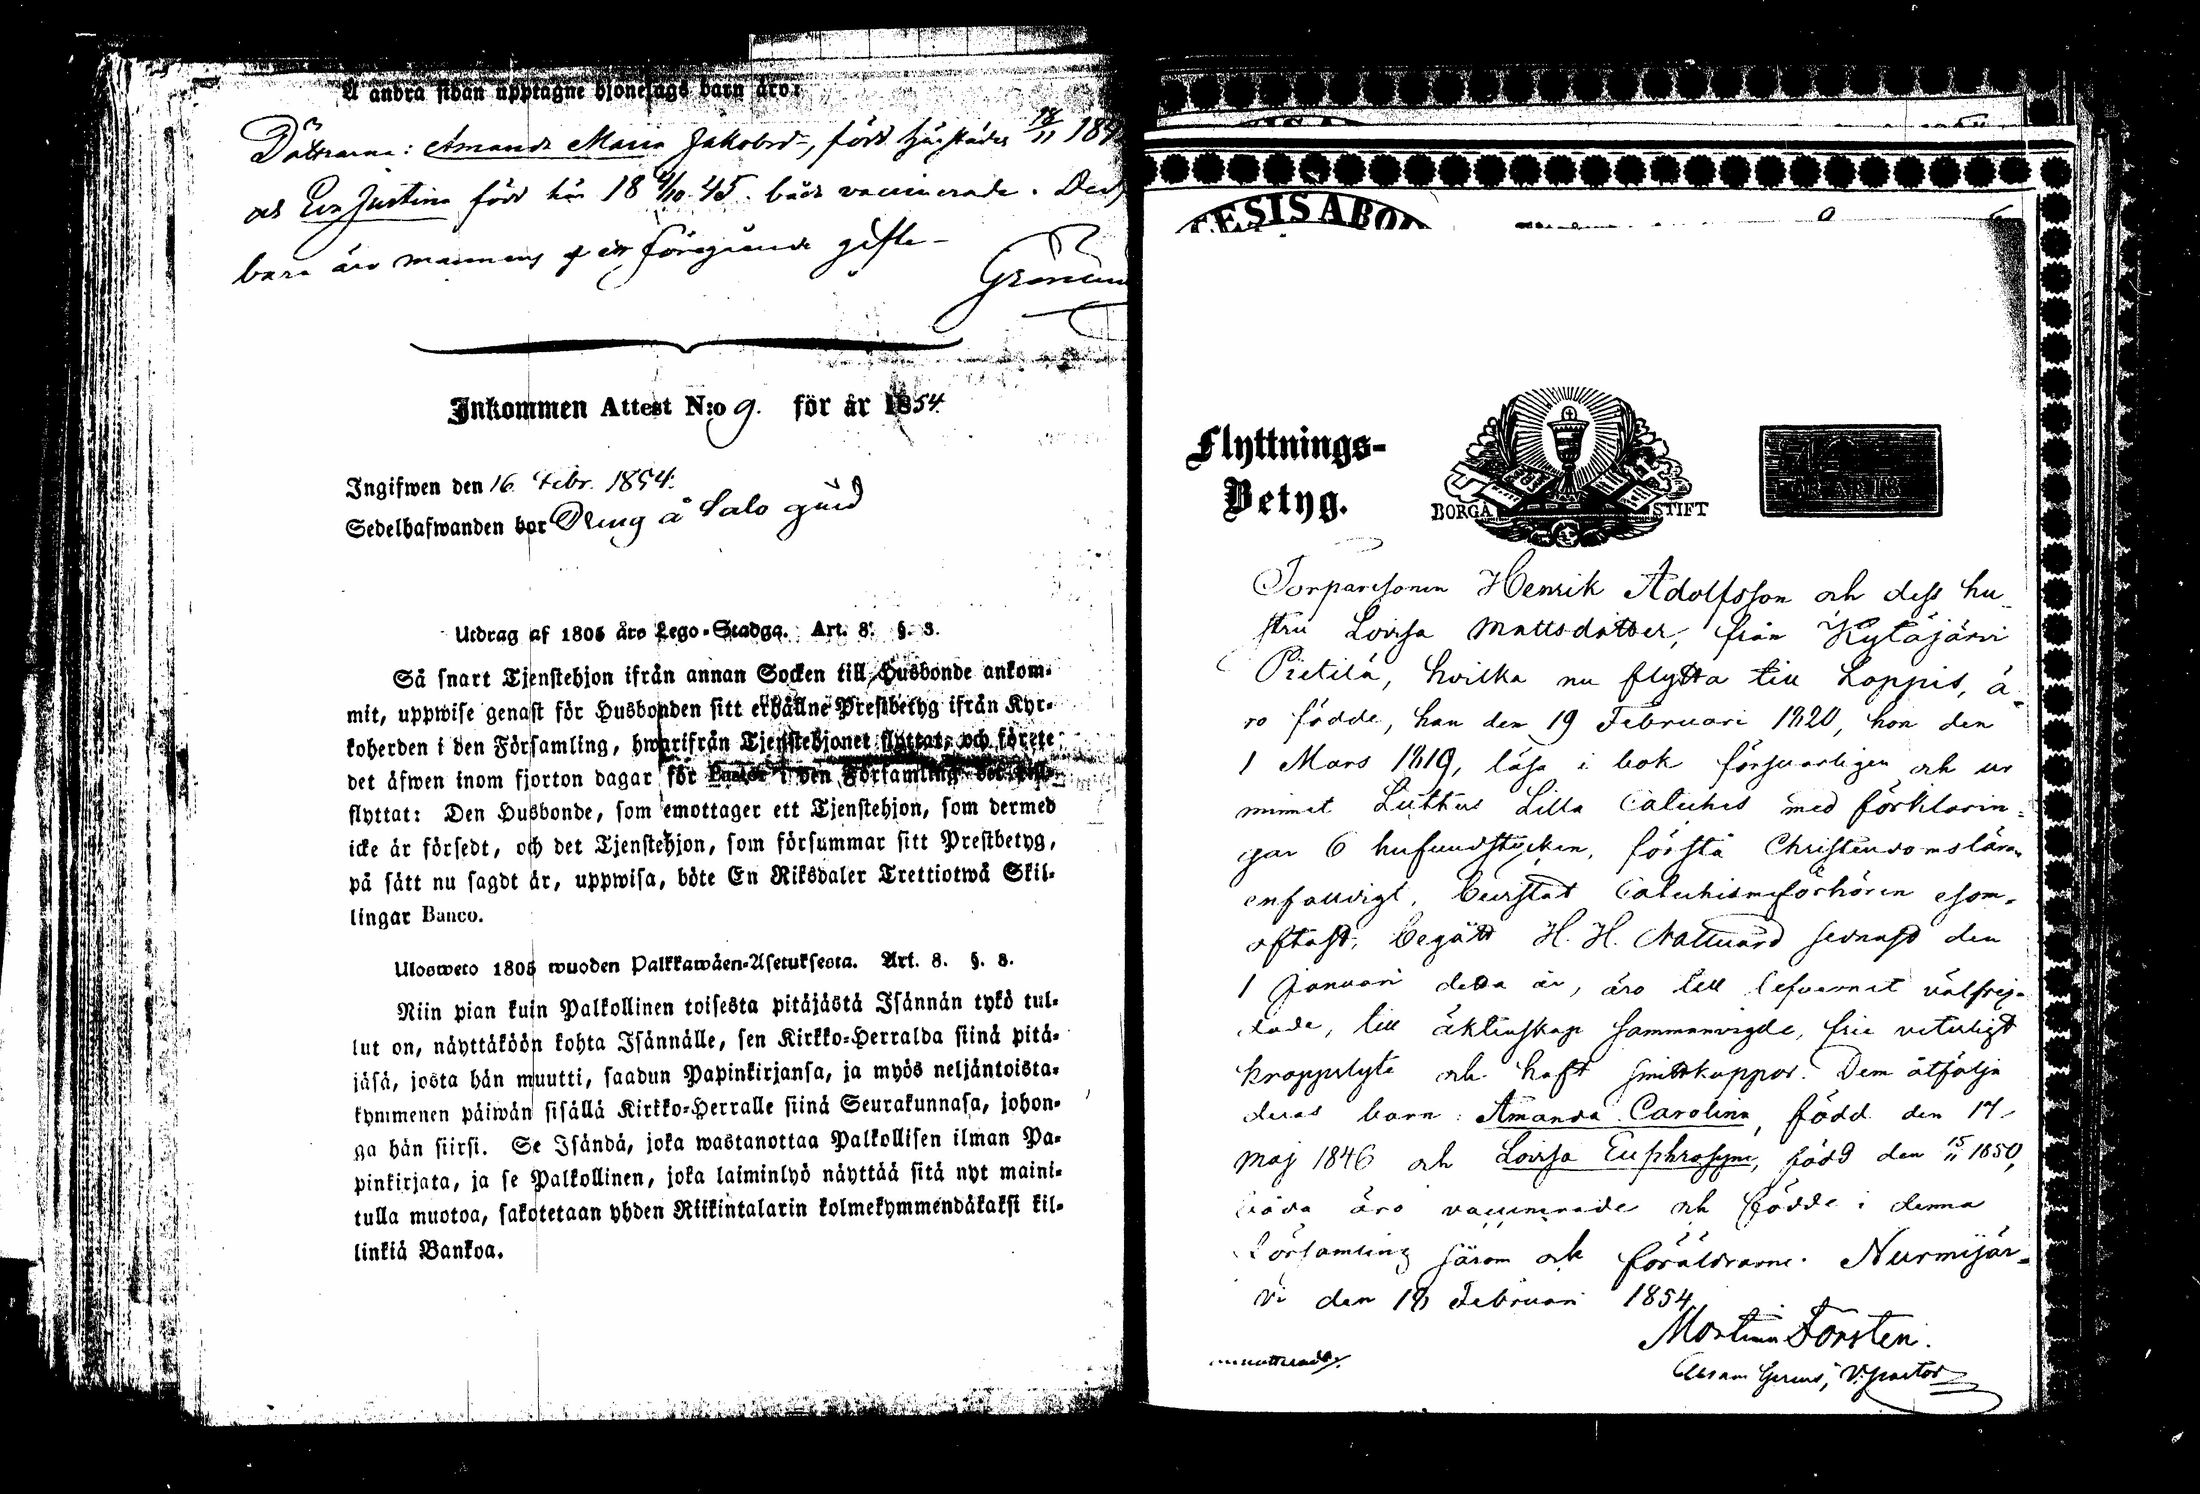 Å andra sidan upptagne hjonelags barn äro:
Döttrarne: Amanda Maria Jakobsd-, född härstädes 18/11
och Eva Justina född här 18 4/10 45. båda vaccinerade.
barn äro mannens af ett föregående gifte-
Inkommen Attest N:o 9. för år 1854.
Ingifwen den 16 Febr. 1854.
Sedelhafwanden bor Dräng å Salo gård
Utdrag af 1805 års Lego-Stadga. Art. 8. §. 3.
Så snart Tjenstehjon ifrån annan Socken till Husbonde ankom-
mit, uppwise genast för Husbonden sitt erhållne Prestbetyg ifrån Kyr-
koherden i den Församling, hwarifrån Tjenstehjonet flyttat, och förete
det äfwen inom fjorton dagar för i den Församling
flyttat: Den Husbonde, som emottager ett Tjenstehjon, som dermed
icke är försedt, och det Tjenstehjon, som försummar sitt Prestbetyg,
på sätt nu sagdt är, uppwisa, böte En Riksdaler Trettiotwå Skil-
lingar Banco.
Ulosweto 1805 wuoden Palkkawäen-Asetuksesta. Art. 8. §. 3.
Niin pian kuin Palkollinen toisesta pitäjästä Isännän tykö tul-
lut on, näyttäköön kohta Isännälle, sen Kirkko-Herralda siinä pitä-
jäsä, josta hän muutti, saadun Papinkirjansa, ja myös neljäntoista-
kymmenen päiwän sisällä Kirkko-Herralle siinä Seurakunnasa, johon-
ga hän siirsi. Se Isändä, joka wastanottaa Palkollisen ilman Pa-
pinkirjata, ja se Palkollinen, joka laiminlyö näyttää sitä nyt maini-
tulla muotoa, sakotetaan yhden Riikintalarin kolmekymmendäkaksi kil-
linkiä Bankoa.
Flyttnings-
Betyg.
BORGÅ STIFT
Torparesonen Henrik Adolfsson och dess hu-
stru Lovisa Mattsdotter, från Kytäjärvi
Pietilä, hvilka nu flytta till Loppis, ä-
ro födde, han den 19 Februari 1820, hon den
1 Mars 1819, läsa i bok försvarligen och ur
minnet Luthers Lilla Cateches med förklarin-
gar 6 hufvudstycken, första Christendomsläran
enfaldigt, bevistat Catechismiförhören esom-
oftast, begått H. H. Nattvard sednast den
1 Januari detta år, äro till lefvernet välfrej-
dade, till äktenskap sammanvigde, frie veterligt
kroppslyte och haft smittkoppor. Dem åtfölja
deras barn: Amanda Carolina, född den 17
Maj 1846 och Lovisa Euphrosyne, född den 15/11 1850,
båda äro vaccinerade och födde i denna
Församling såsom och föräldrarne. Nurmijär-
vi den 10 Februari 1854
Martinn Forsten.
V. pastor